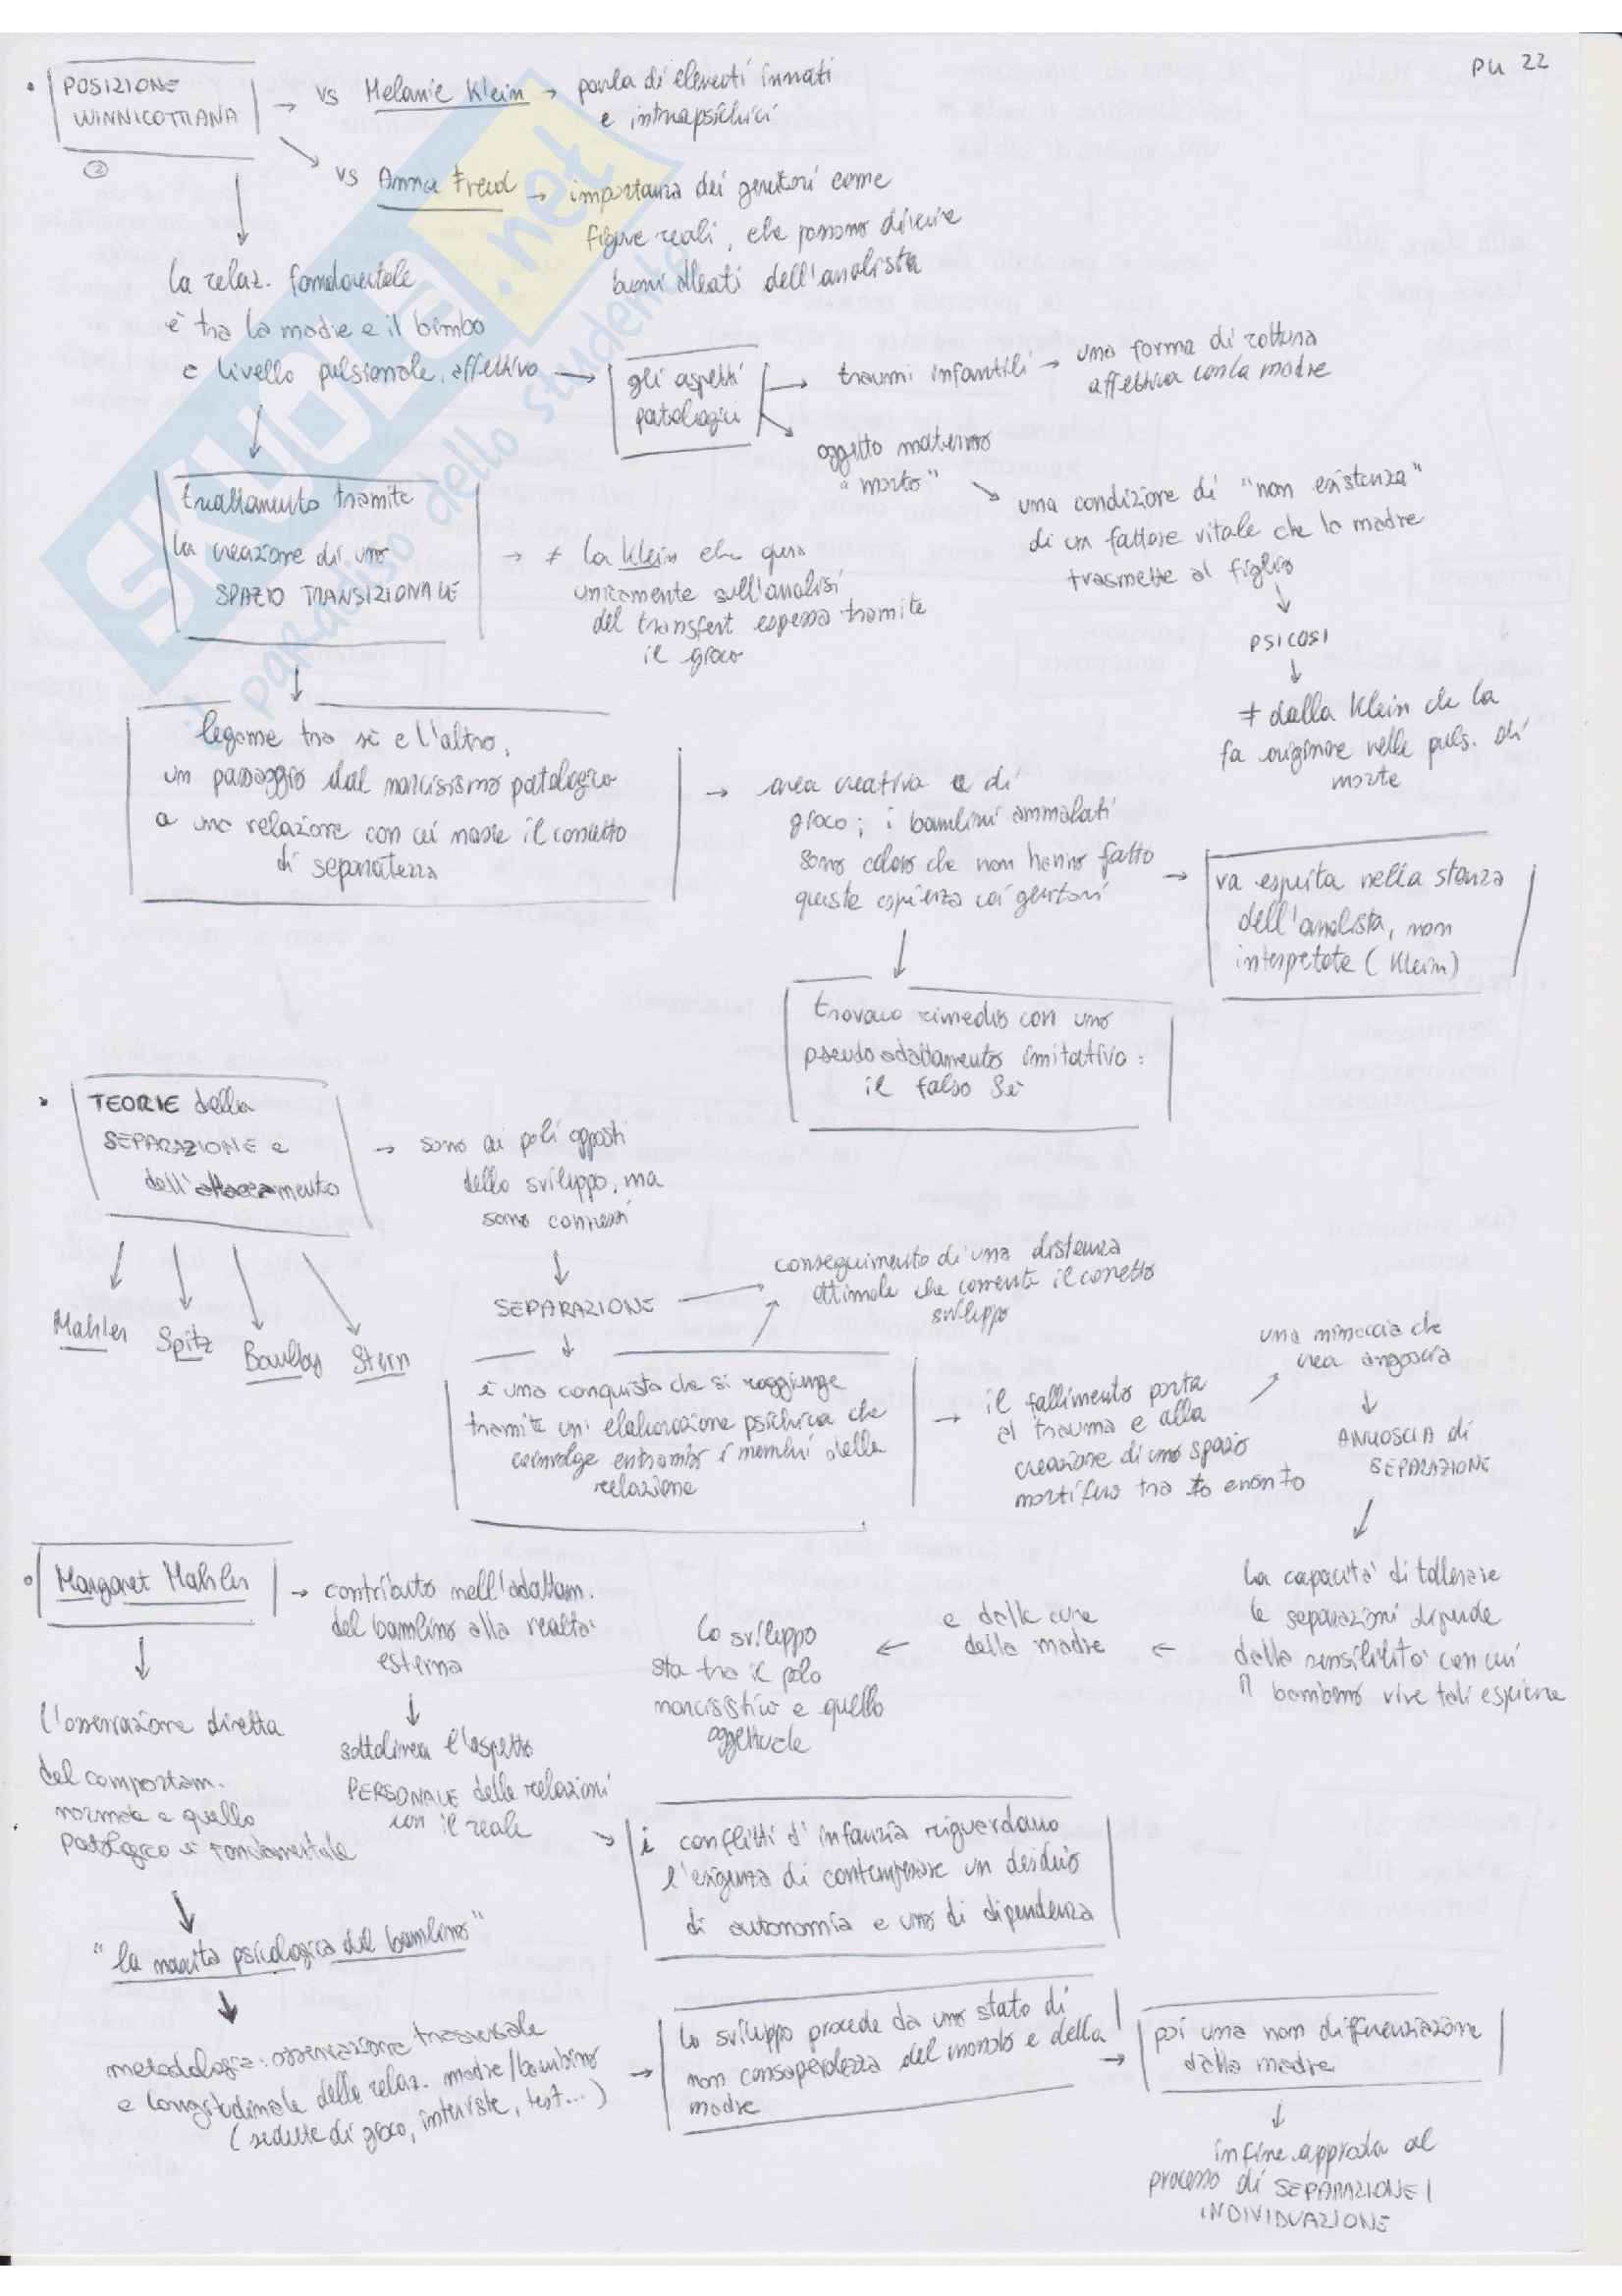 PU 22
POSIZIONE
WINNICOTTIANA
②
→ vs Melanie Klein → parla di elementi innati
e intrapsichici
vs Anna Freud → importanza dei genitori come
figure reali, che possono divenire
buoni alleati dell'analista
la relaz. fondamentale
è tra la madre e il bimbo
a livello pulsionale, affettivo →
gli aspetti
patologici
→ traumi infantili → una forma di rottura
affettiva con la madre
oggetto materno
"morto"
una condizione di "non esistenza"
di un fattore vitale che la madre
trasmette al figlio
PSICOSI
≠ dalla Klein che la
fa originare nelle puls. di
morte
trattamento tramite
la creazione di uno
SPAZIO TRANSIZIONALE
→ ≠ la Klein che
unicamente sull'analisi
del transfert espressa tramite
il gioco
legame tra sè e l'altro,
un passaggio dal narcisismo patologico
a una relazione con cui nasce il concetto
di separatezza
→ area creativa e di
gioco; i bambini ammalati
sono coloro che non hanno fatto
queste esperienza coi genitori
→ va esperita nella stanza
dell'analista, non
interpretata (Klein)
trovano rimedio con uno
pseudoadattamento imitativo:
il falso Sè
TEORIE della
SEPARAZIONE e
dell'attaccamento
→ sono ai poli opposti
dello sviluppo, ma
sono connessi
Mahler Spitz Bowlby Stern
SEPARAZIONE
conseguimento di una distanza
ottimale che consente il corretto
sviluppo
è una conquista che si raggiunge
tramite un'elaborazione psichica che
coinvolge entrambi i membri della
relazione
→ il fallimento porta
al trauma e alla
creazione di uno spazio
mortifero tra
una minaccia che
crea angoscia
ANGOSCIA di
SEPARAZIONE
la capacità di tollerare
le separazioni dipende
dalla sensibilità con cui
il bambino vive tali esperienze
← e dalle cure
della madre
← lo sviluppo
sta tra il polo
narcisistico e quello
oggettuale
Margaret Mahler
→ contributo nell'adattam.
del bambino alla realtà
esterna
sottolinea l'aspetto
PERSONALE delle relazioni
con il reale
i conflitti d'infanzia riguardano
l'esigenza di contemperare un desiderio
di autonomia e uno di dipendenza
l'osservazione diretta
del comportam.
normale e quello
patologico è fondamentale
"la nascita psicologica del bambino"
metodologia: osservazione trasversale
e longitudinale delle relaz. madre/bambino
(sedute di gioco, interviste, test...)
→ lo sviluppo procede da uno stato di
non consapevolezza del mondo e della
madre
→ poi una non differenziazione
dalla madre
infine approda al
processo di SEPARAZIONE/
INDIVIDUAZIONE
SKUOLA.net
il paradiso dello studente